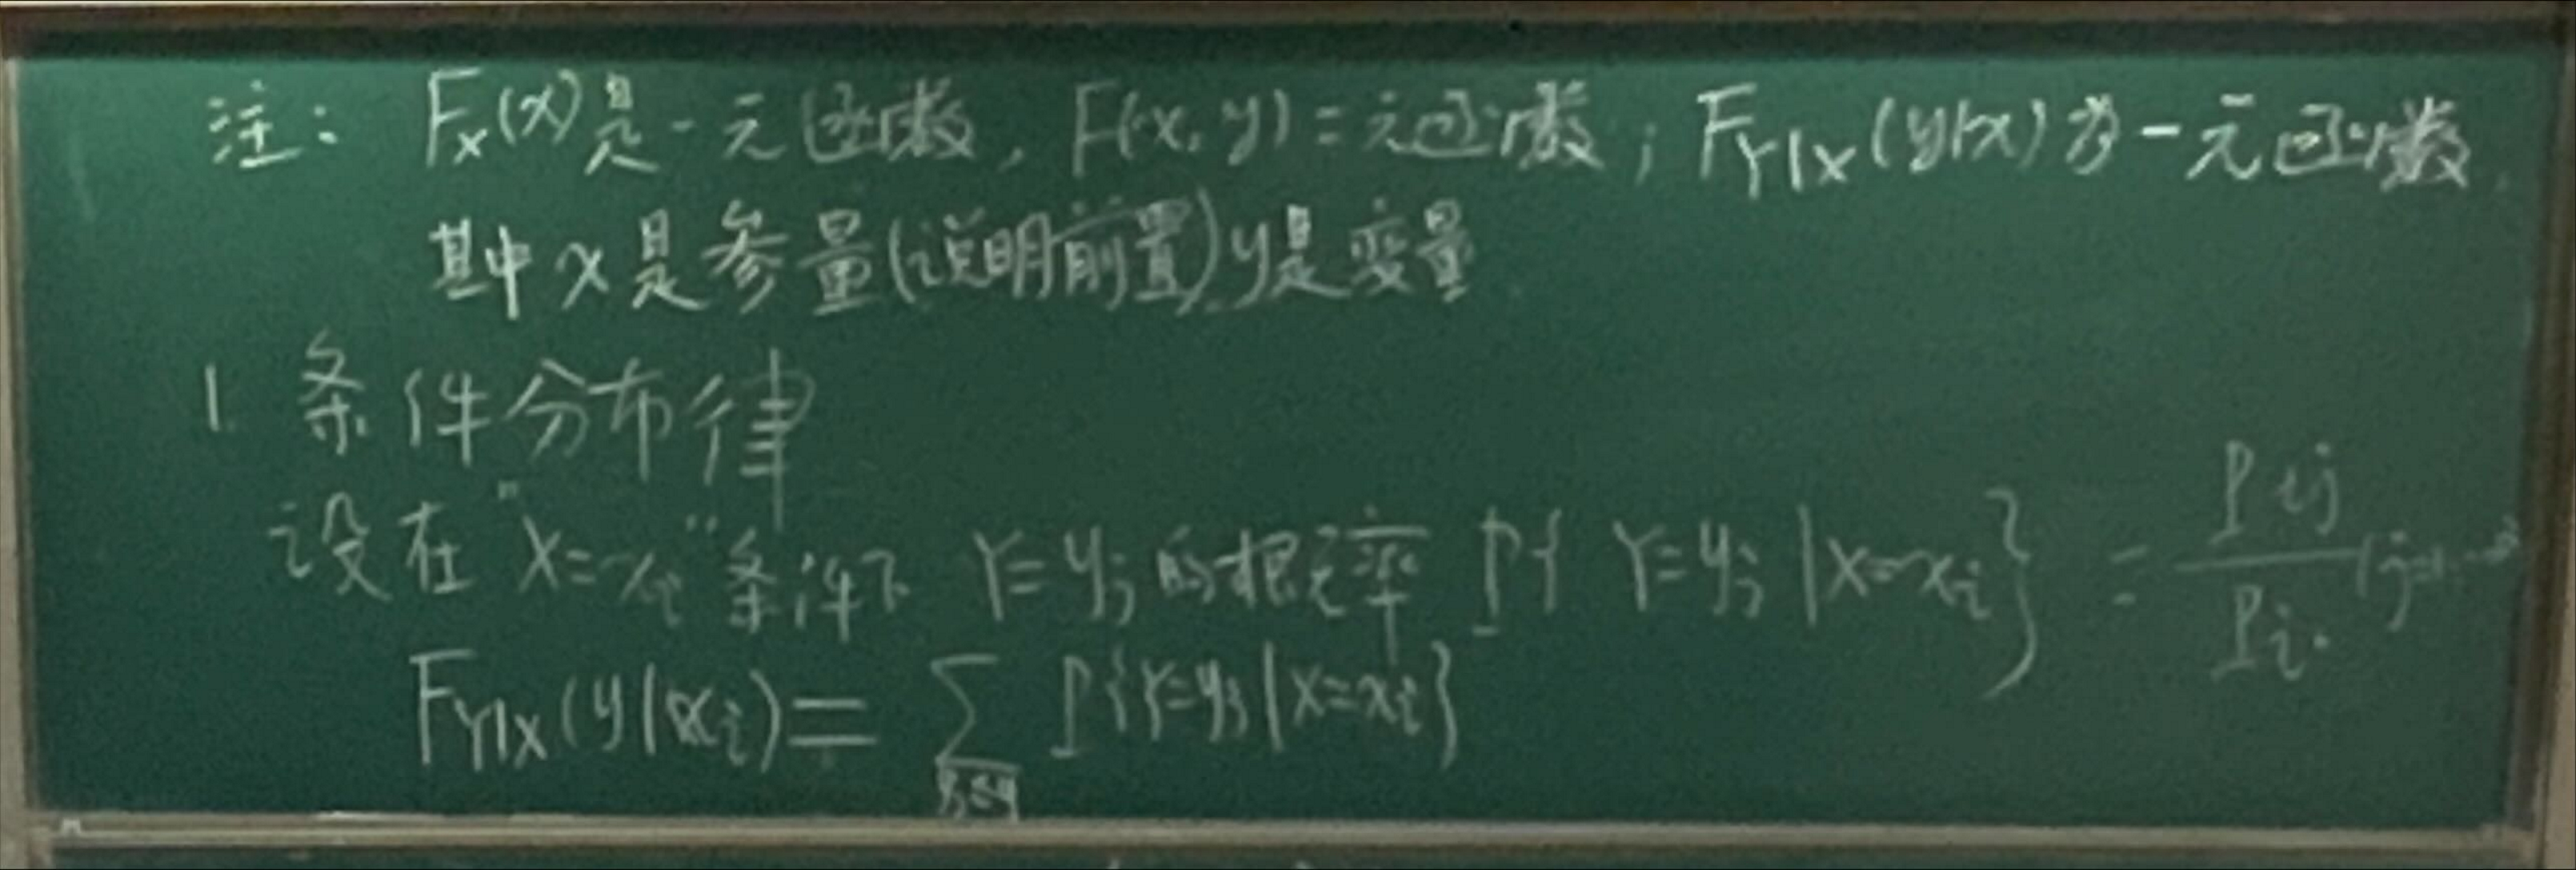 注: Fx(x)是一元函数, F(x,y)二元函数; F_{Y|X}(y|x)为一元函数,
其中x是参量(说明前置)y是变量
1. 条件分布律
设在"X=x_i"条件下 Y=y_j 的概率 P{Y=y_j|X=x_i} = \frac{P_{ij}}{P_{i·}} (j=1,…
F_{Y|X}(y|x_i)= \sum_{y_j≤y} P{Y=y_j|X=x_i}